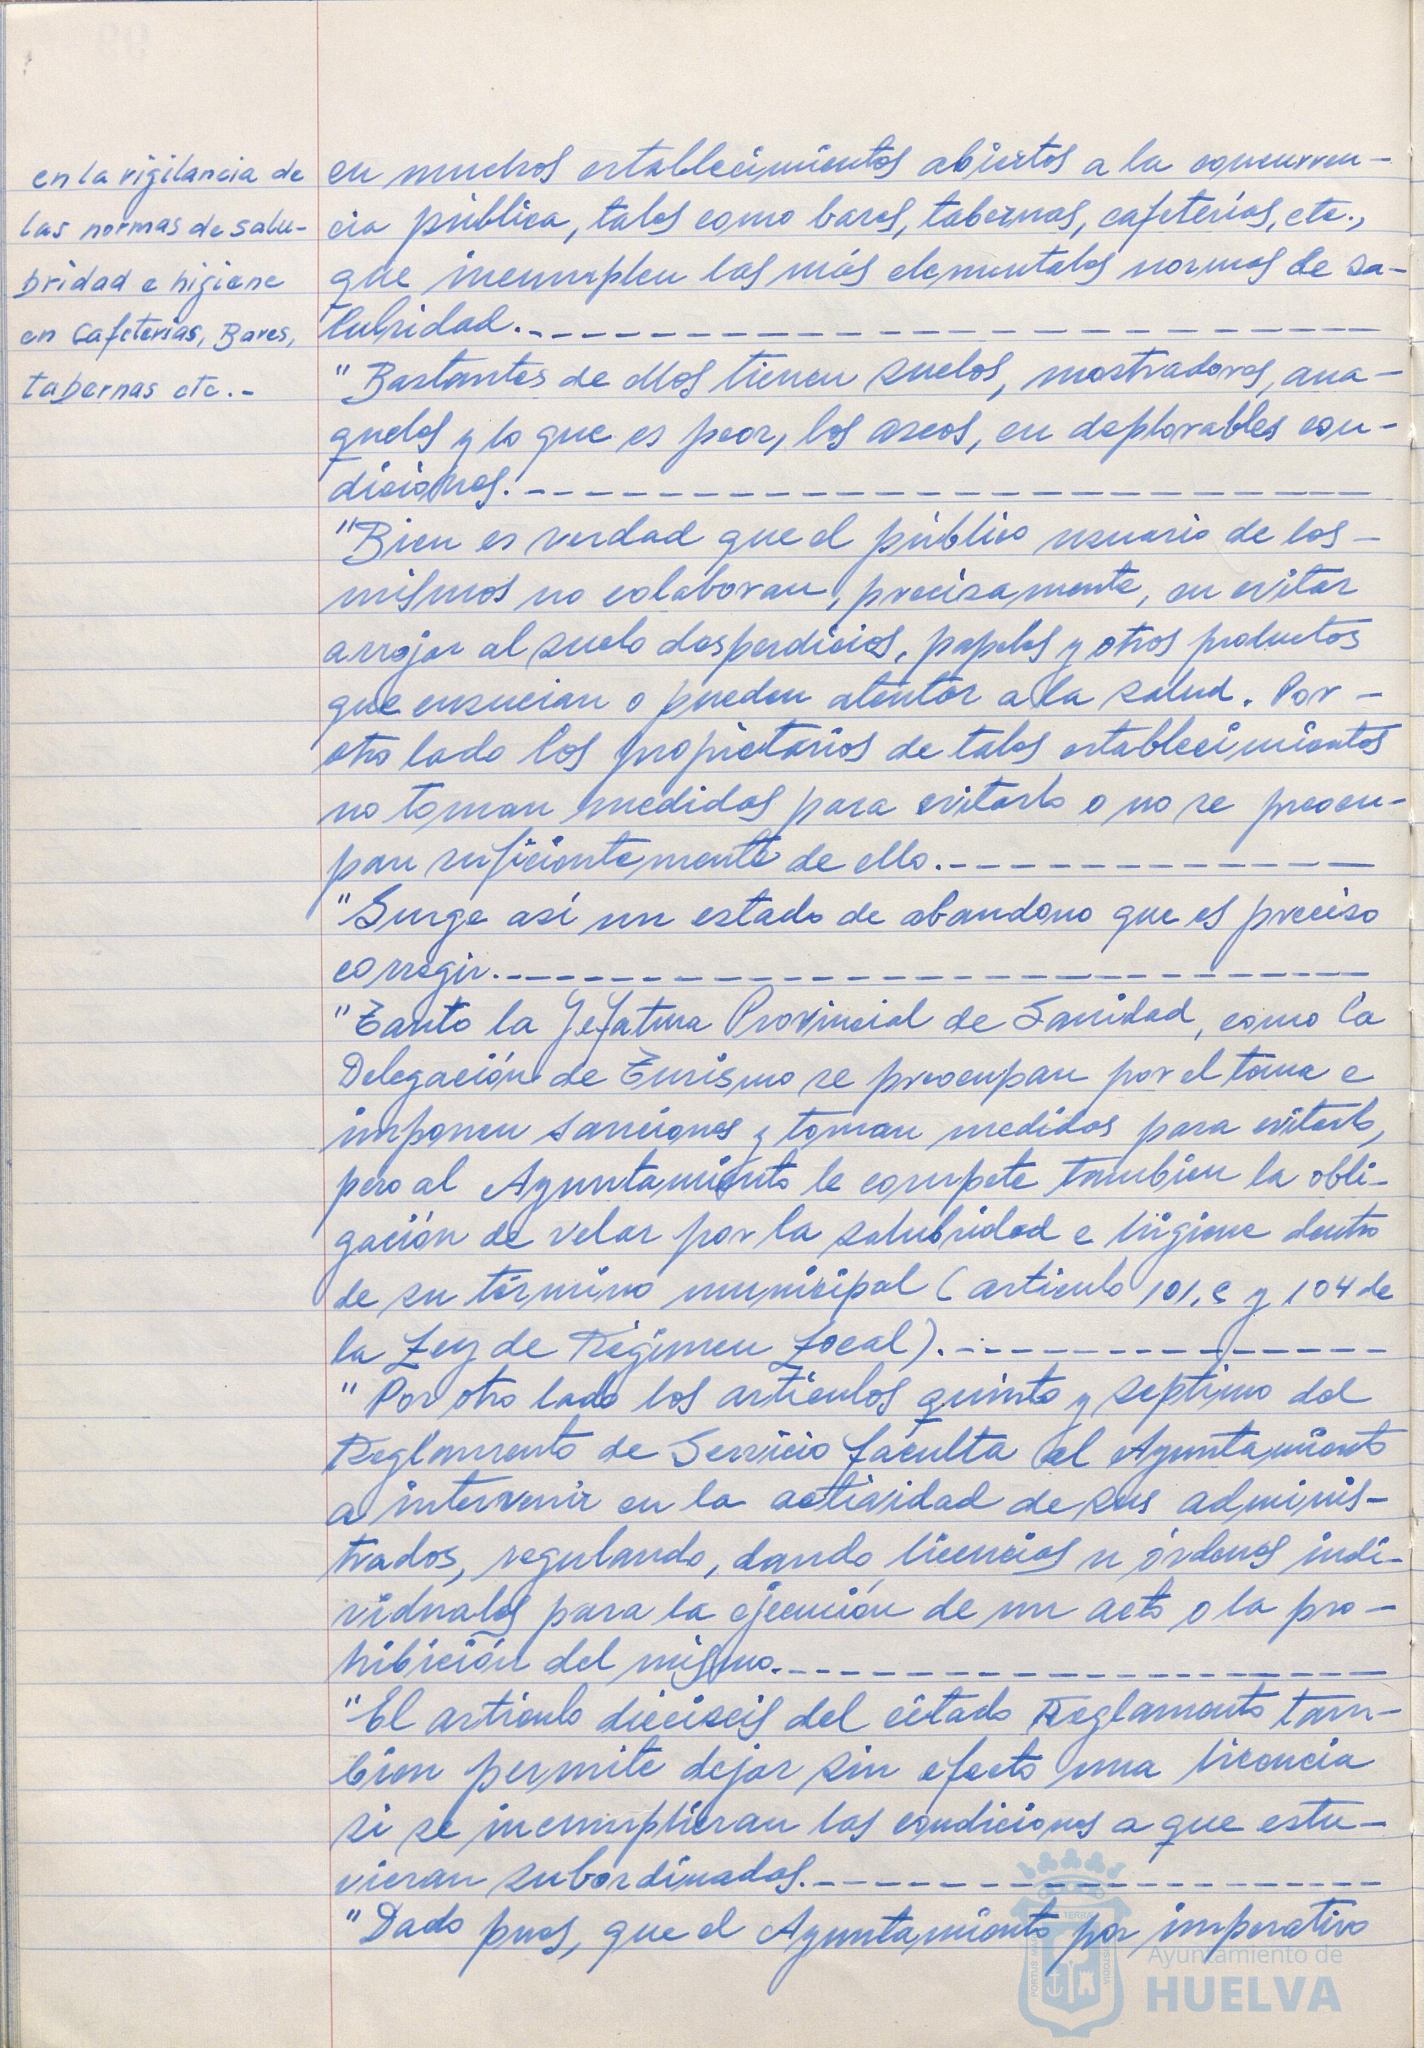 en la vigilancia de
las normas de salu-
bridad e higiene
en Cafeterias, Bares,
tabernas etc.-
en muchos establecimientos abiertos a la concurren-
cia pública, tales como bares, tabernas, cafeterías, etc.,
que incumplen las más elementales normas de sa-
lubridad.
"Bastantes de ellos tienen suelos, mostradores, ana-
queles y lo que es peor, los aseos, en deplorables con-
diciones.
"Bien es verdad que el público usuario de los-
mismos no colaboran, precisamente, en evitar
arrojar al suelo desperdicios, papeles y otros productos
que ensucian o pueden atentar a la salud. Por-
otro lado los propietarios de tales establecimientos
no toman medidas para evitarlo o no se preocu-
pan suficientemente de ello.
"Surge así un estado de abandono que es preciso
corregir.
"Tanto la Jefatura Provincial de Sanidad, como la
Delegación de Turismo se preocupan por el tema e
imponen sanciones y toman medidas para evitarlo,
pero al Ayuntamiento le compete tambien la obli-
gación de velar por la salubridad e higiene dentro
de su término municipal (articulo 101, c y 104 de
la Ley de Régimen Local).
"Por otro lado los artículos quinto y septimo del
Reglamento de Servicio faculta al Ayuntamiento
a intervenir en la actividad de sus adminis-
trados, regulando, dando licencias u órdenes indi-
viduales para la ejecución de un acto o la pro-
hibición del mismo.
"El artículo dieciseis del citado Reglamento tam-
bien permite dejar sin efecto una licencia
si se incumplieran las condiciones a que estu-
vieran subordinadas.
"Dado pues, que el Ayuntamiento por imperativo
Ayuntamiento de
HUELVA